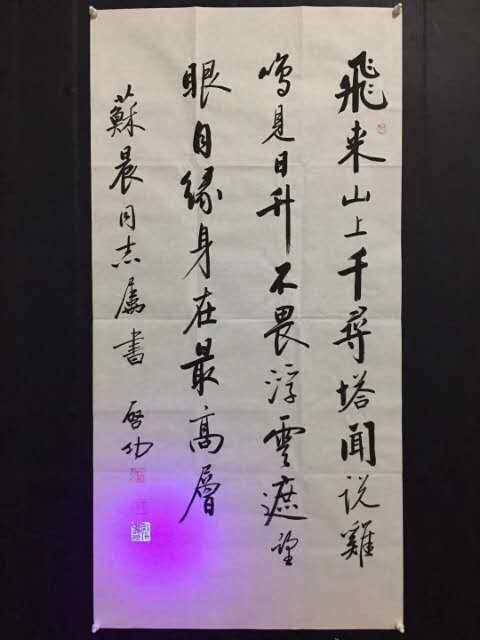 飛来山上千尋塔聞说雞
鳴見日升不畏浮雲遮望
眼自緣身在最高層
蘇晨同志属書 啓功